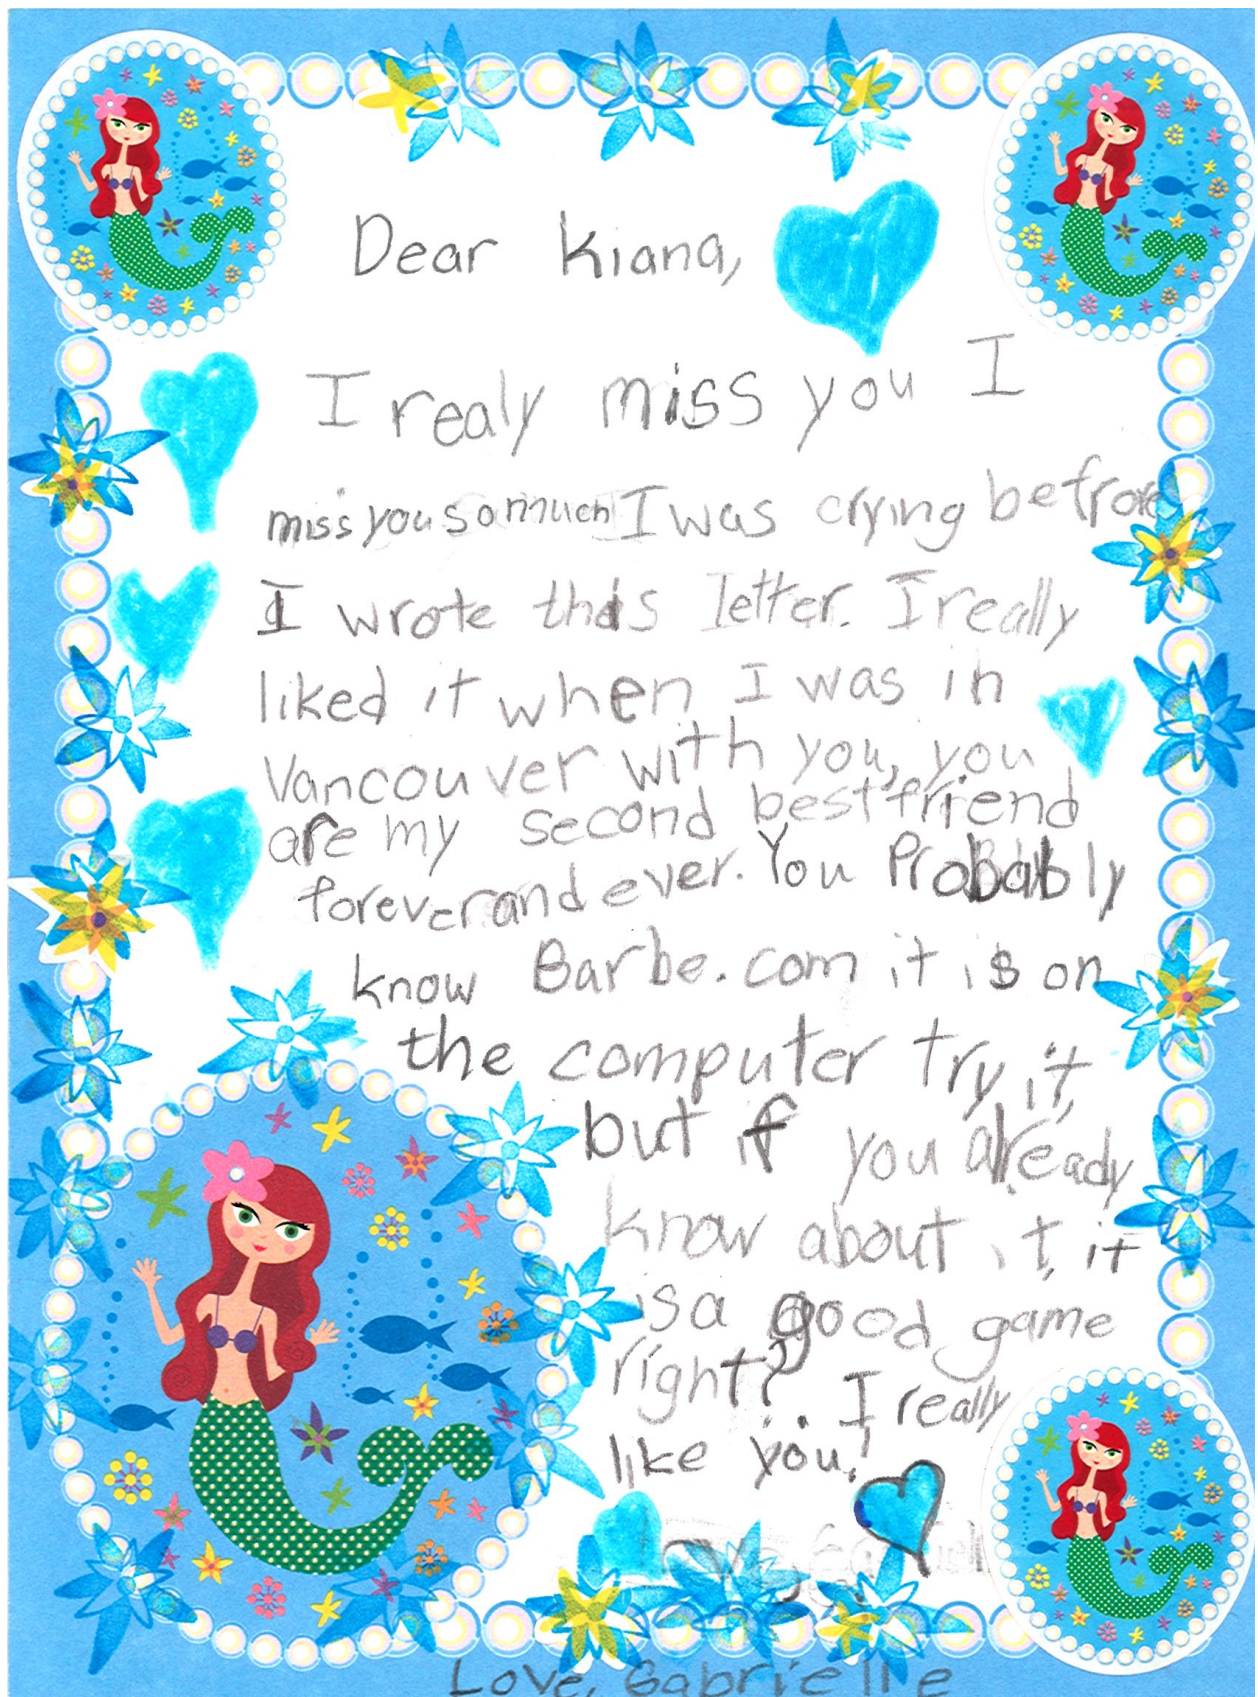 Dear Kiana,
I realy miss you I
miss you so much I was crying befrore
I wrote this letter. I really
liked it when I was in
Vancouver with you, you
are my second best friend
forever and ever. You Probably
know Barbe.com it is on
the computer try it,
but if you already
know about it, it
is a good game
right?.. I really
like you!
Love, Gabrielle